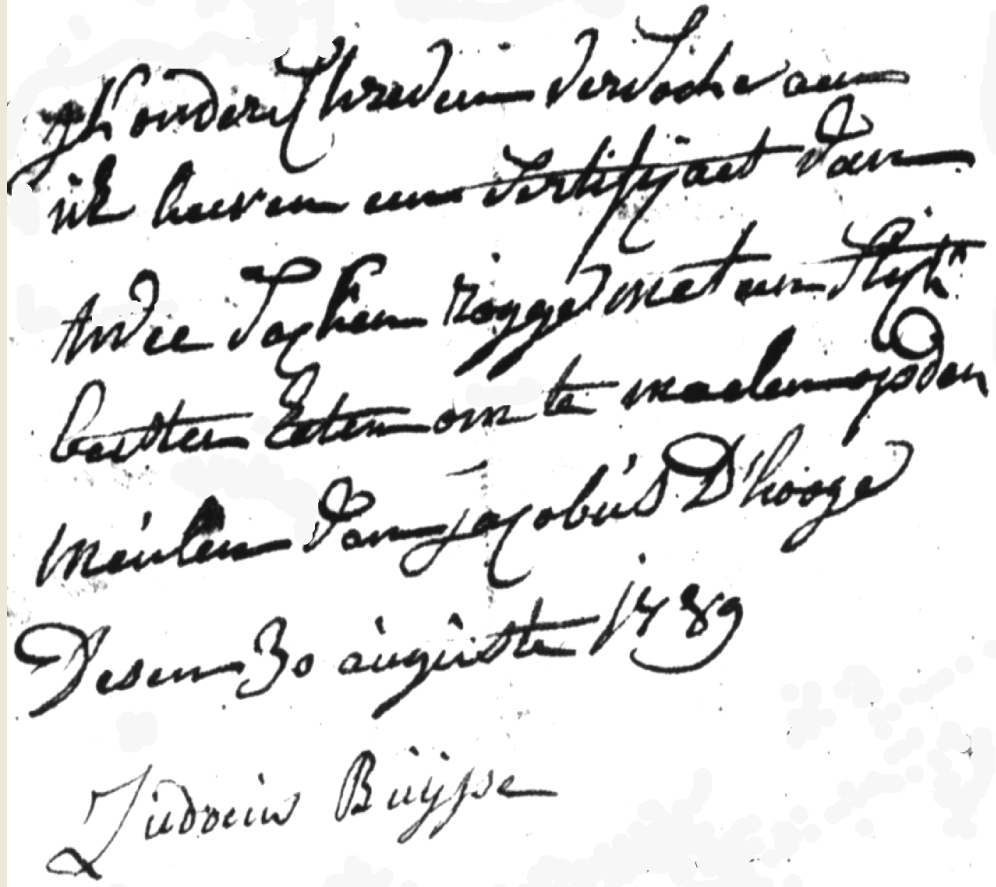 ik onderschreven versocke aen
ick heeren een sertifijcaet van
twee sacken rogge met een stijck
bester Eeten om te maelen op den
meulen van jacobus D'hooge
Desen 30 auguste 1789
Judocus Buijsse